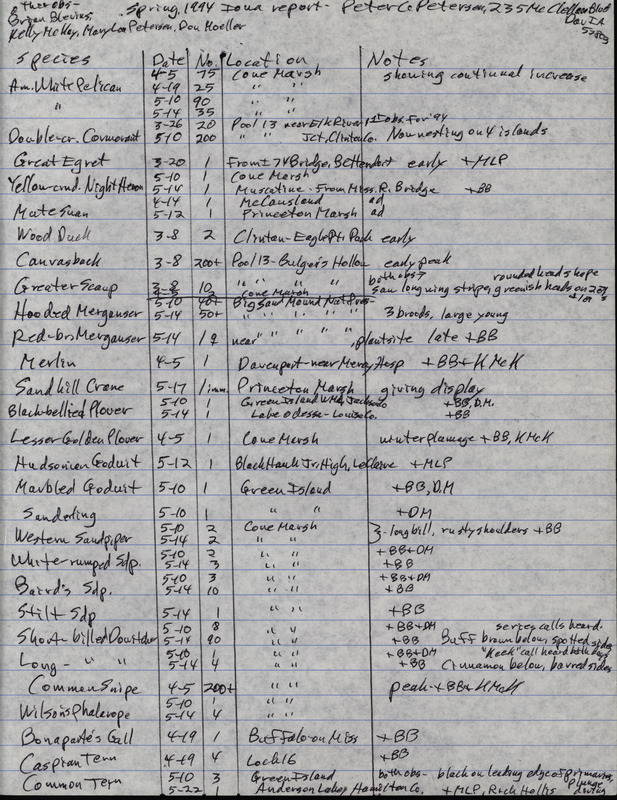 other obs- Spring, 1994 Iowa report - Peter C. Petersen, 235 McClellan Blvd
Bryan Blevins, Dav IA
Kelly McKay, Mary Lou Petersen, Don Moeller 52803
Species Date No. Location Notes
Am. White Pelican 4-5 75 Cone Marsh showing continual increase
" 4-19 25 " "
5-10 90 " "
5-14 35 " "
Double-cr. Cormorant 3-26 20 Pool 13 near Elk River, 1st obs. for '94
5-10 200 " " Jct, Clinton Co. Now nesting on 4 islands
Great Egret 3-20 1 From I 74 Bridge, Bettendorf early + MLP
Yellow-crnd. Night Heron 5-10 1 Cone Marsh
5-14 1 Muscatine - From Miss. R. Bridge + BB
Mute Swan 4-14 1 McCausland ad
5-12 1 Princeton Marsh ad
Wood Duck 3-8 2 Clinton - Eagle Pt. Park early
Canvasback 3-8 200+ Pool 13 - Bulger's Hollow early peak
Greater Scaup 3-8 10 " " " " both obs- rounded head shape
Cone Marsh saw long wing stripe, greenish heads on
Hooded Merganser 5-10 40+ Big Sand Mound Nat. Pres-
5-14 50+ " " " " 3 broods, large young
Red-br. Merganser 5-14 1♀ near " " " ", plantsite late + BB
Merlin 4-5 1 Davenport - near Mercy Hosp + BB + KMcK
Sandhill Crane 5-17 1 imm. Princeton Marsh giving display
Black-bellied Plover 5-10 1 Green Island WMA, Jackson Co + BB, D.M.
5-14 1 Lake Odessa - Louisa Co. + BB
Lesser Golden Plover 4-5 1 Cone Marsh winter plumage + BB, KMcK
Hudsonian Godwit 5-12 1 Black Hawk Jr. High, LeClaire + MLP
Marbled Godwit 5-10 1 Green Island + BB, DM
Sanderling 5-10 1 " " + DM
Western Sandpiper 5-10 2 Cone Marsh } - long bill, rusty shoulders + BB
5-14 2 " "
White-rumped Sdp. 5-10 2 " " + BB + DM
5-14 3 " " + BB
Baird's Sdp. 5-10 3 " " + BB + DM
5-14 10 " " + BB
Stilt Sdp 5-14 1 " " + BB
Short-billed Dowitcher 5-10 8 " " + BB + DM series calls heard.
5-14 90 " " + BB Buff brown below, spotted sides
Long- " " 5-10 1 " " + BB + DM "Keek" call heard both days
5-14 4 " " + BB Cinnamon below, barred sides
Common Snipe 4-5 200+ " " peak + BB + KMcK
Wilson's Phalarope 5-10 1 " "
5-14 4 " "
Bonaparte's Gull 4-19 1 Buffalo - on Miss + BB
Caspian Tern 4-19 4 Lock 16 + BB
Common Tern 5-10 3 Green Island both obs- black on leading edge of primaries,
5-22 1 Anderson Lake, Hamilton Co. + MLP, Rick Hollis plunge diving